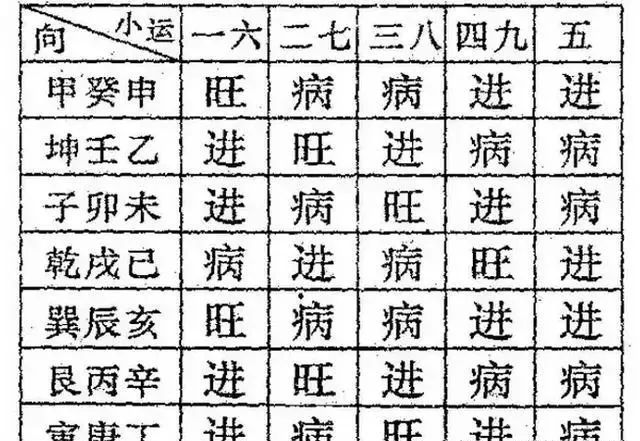 向 小运 一六 二七 三八 四九 五
甲癸申 旺 病 病 进 进
坤壬乙 进 旺 进 病 病
子卯未 进 病 旺 进 病
乾戌已 病 进 病 旺 进
巽辰亥 旺 病 病 进 进
艮丙辛 进 旺 进 病 病
寅庚丁 进 病 旺 进 病